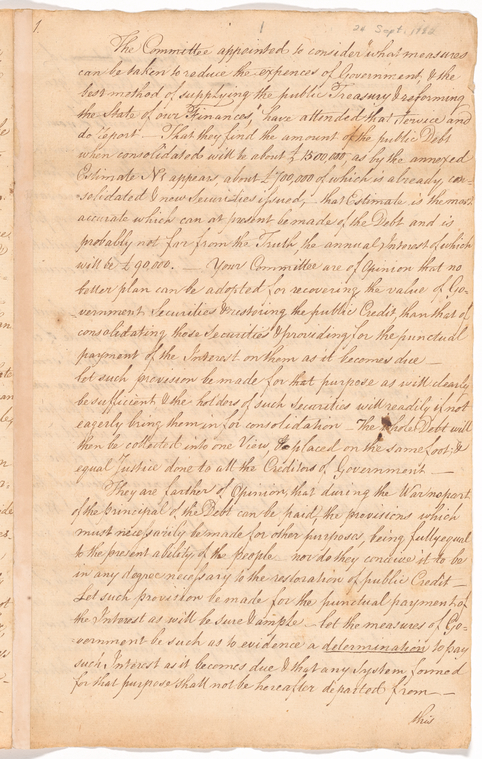 1.
26 Sept. 1782
The Committee appointed to consider "what measures
can be taken to reduce the expences of Government, & the
best method of supplying the public Treasury & reforming
the State of our Finances," have attended that Service and
do report — That they find the amount of the public Debt
when consolidated will be about £1500,000, as by the annexed
Estimate No 1 appears, about £700,000 of which is already con=
solidated & new Securities issued, — that Estimate is the most
accurate which can at present be made of the Debt and is
probably not far from the Truth the annual Interest of which
will be £90,000. — Your Committee are of Opinion that no
better plan can be adopted for recovering the value of Go-
vernment Securities & restoring the public Credit than that of
consolidating those Securities & providing for the punctual
payment of the Interest on them as it becomes due
Let such provision be made for that purpose as will clearly
be sufficient & the holders of such Securities will readily if not
eagerly bring them in for consolidation — The whole Debt will
then be collected into one View & placed on the same foot; &
equal Justice done to all the Creditors of Government —
They are farther of Opinion, that during the War no part
of the Principal of the Debt can be paid, the provisions which
must necessarily be made for other purposes, being fully equal
to the present ability of the people — nor do they conceive it to be
in any degree necessary to the restoration of public Credit —
Let such provision be made for the punctual payment of
the Interest as will be sure & ample — Let the measures of Go-
vernment be such as to evidence a determination to pay
such Interest as it becomes due & that any System formed
for that purpose shall not be hereafter departed from —
this